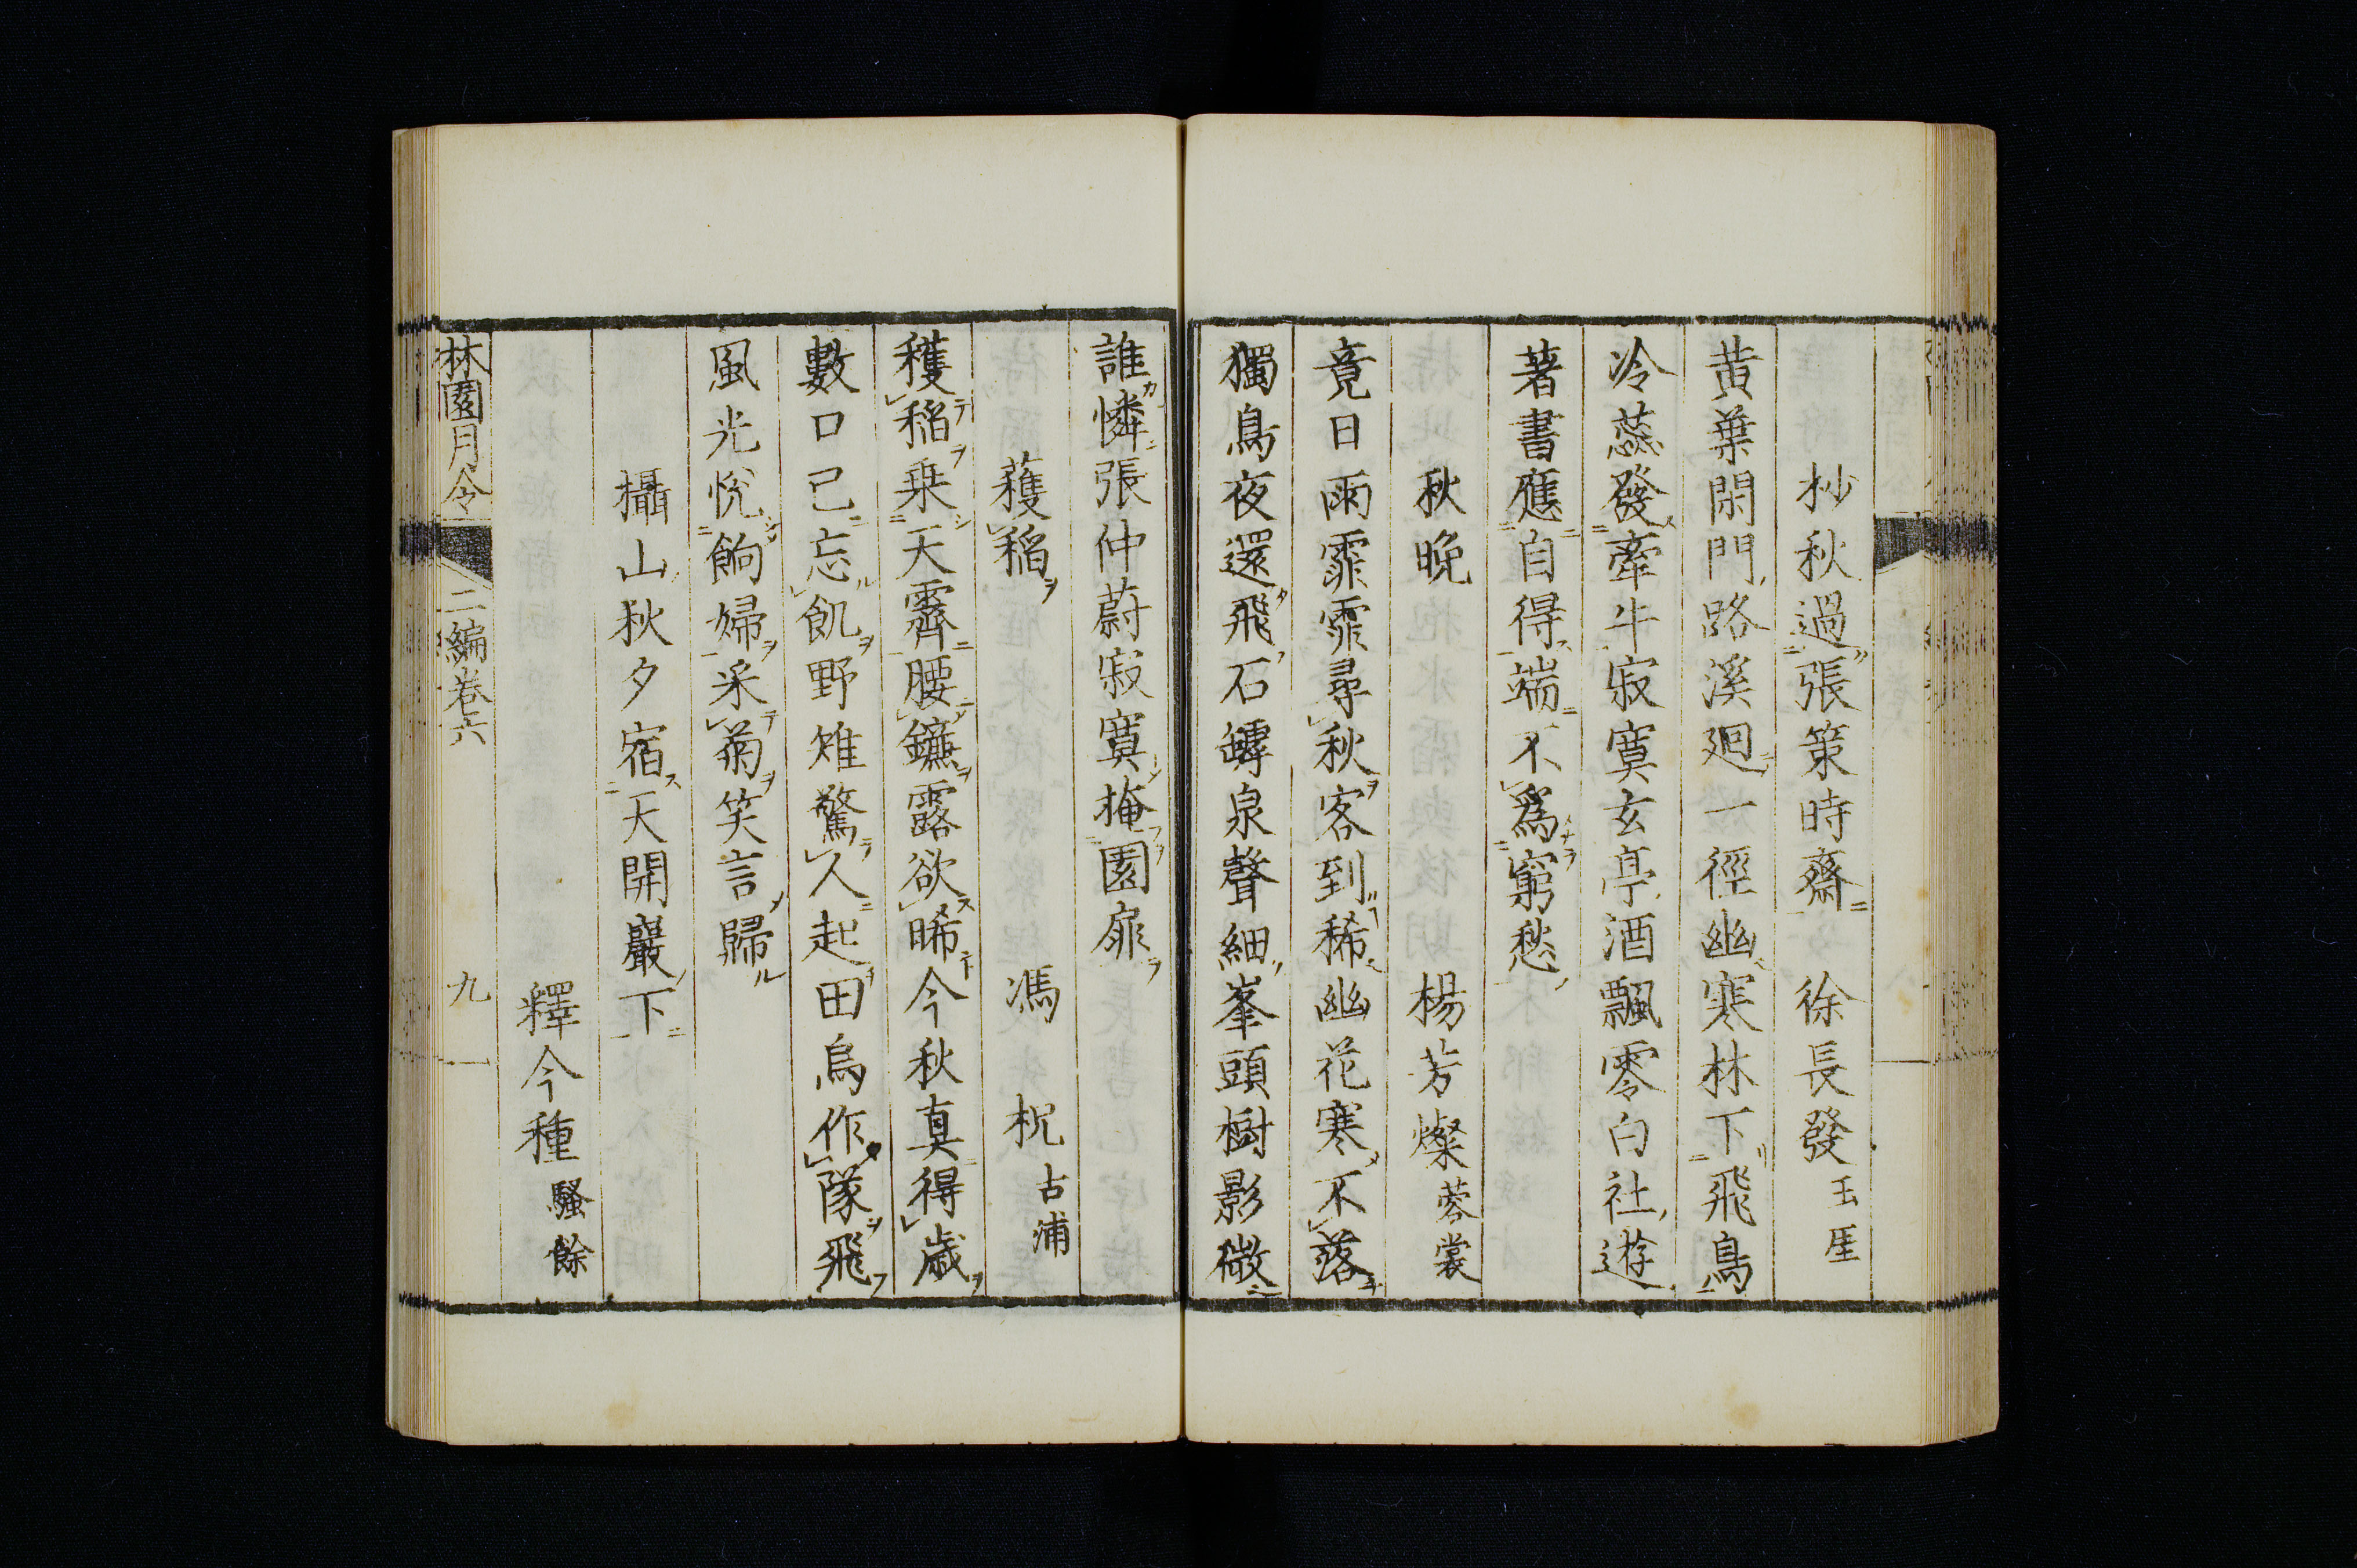 杪秋過張策時齋　徐長發玉厓
黄葉閑門路溪廻一徑幽寒林下飛鳥
冷蕊發牽牛寂寞玄亭酒飄零白社遊
著書應自得端不爲窮愁
秋晚　楊芳燦蓉裳
竟日雨霏霏尋秋客到稀幽花寒不落
獨鳥夜還飛石罅泉聲細峯頭樹影微
誰憐張仲蔚寂寞掩園扉
穫稲　馮柷古浦
穫稲乗天霽腰鐮露欲晞今秋真得歳
數口已忘飢野雉驚人起田烏作隊飛
風光悅餉婦采菊笑言歸
攝山秋夕宿天開巖下
釋今種騷餘
林園月令　二編巻六　九